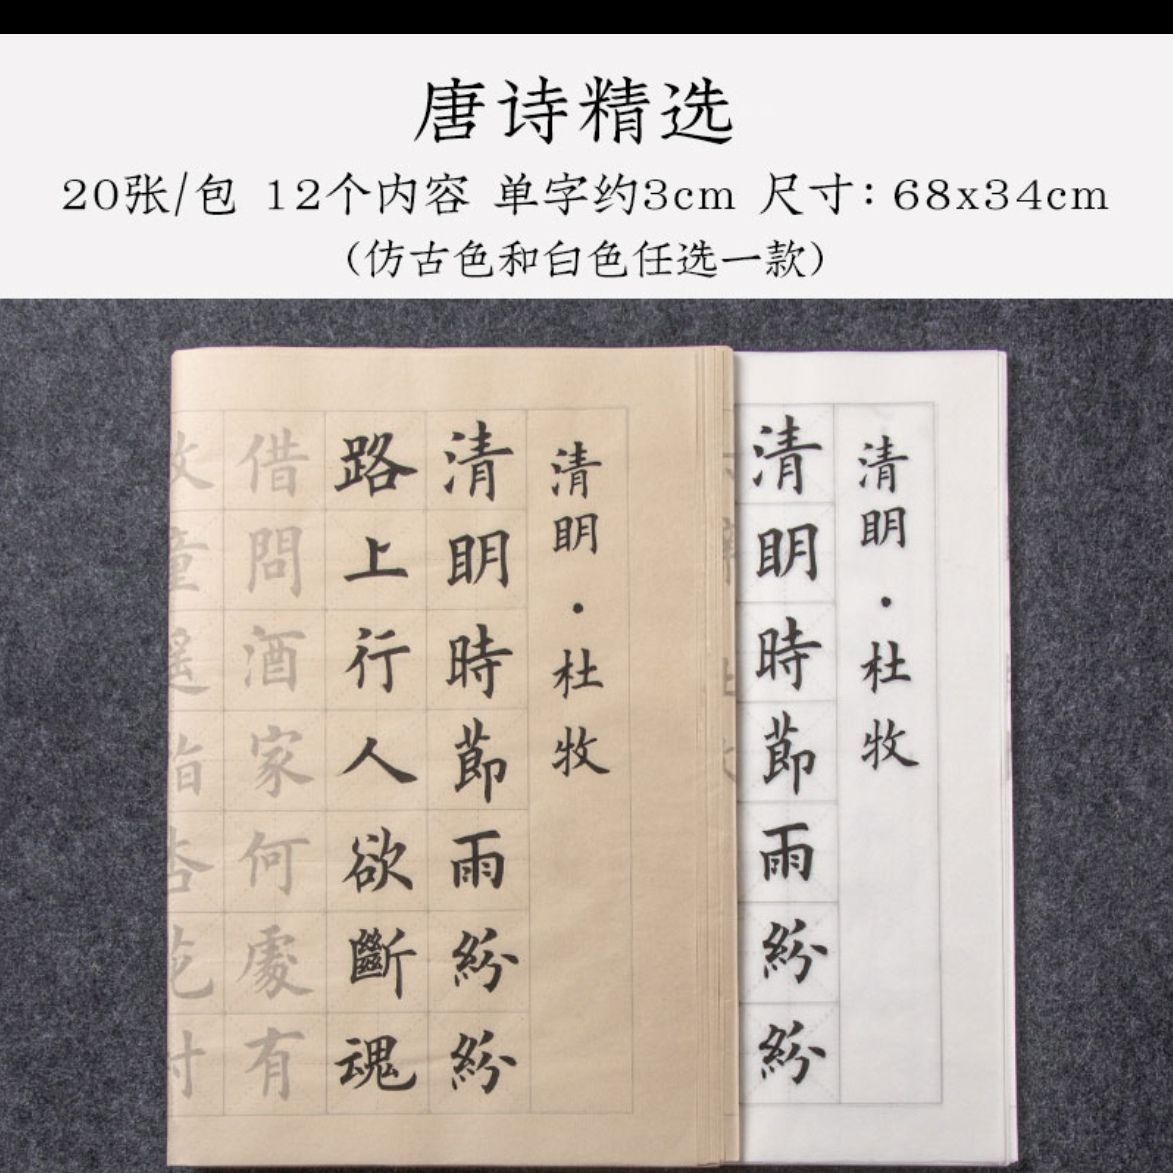 唐诗精选
20张/包 12个内容 单字约3cm 尺寸：68x34cm
（仿古色和白色任选一款）
清明·杜牧
清明時節雨紛紛
清明·杜牧
清明時節雨紛紛
路上行人欲斷魂
借問酒家何處有